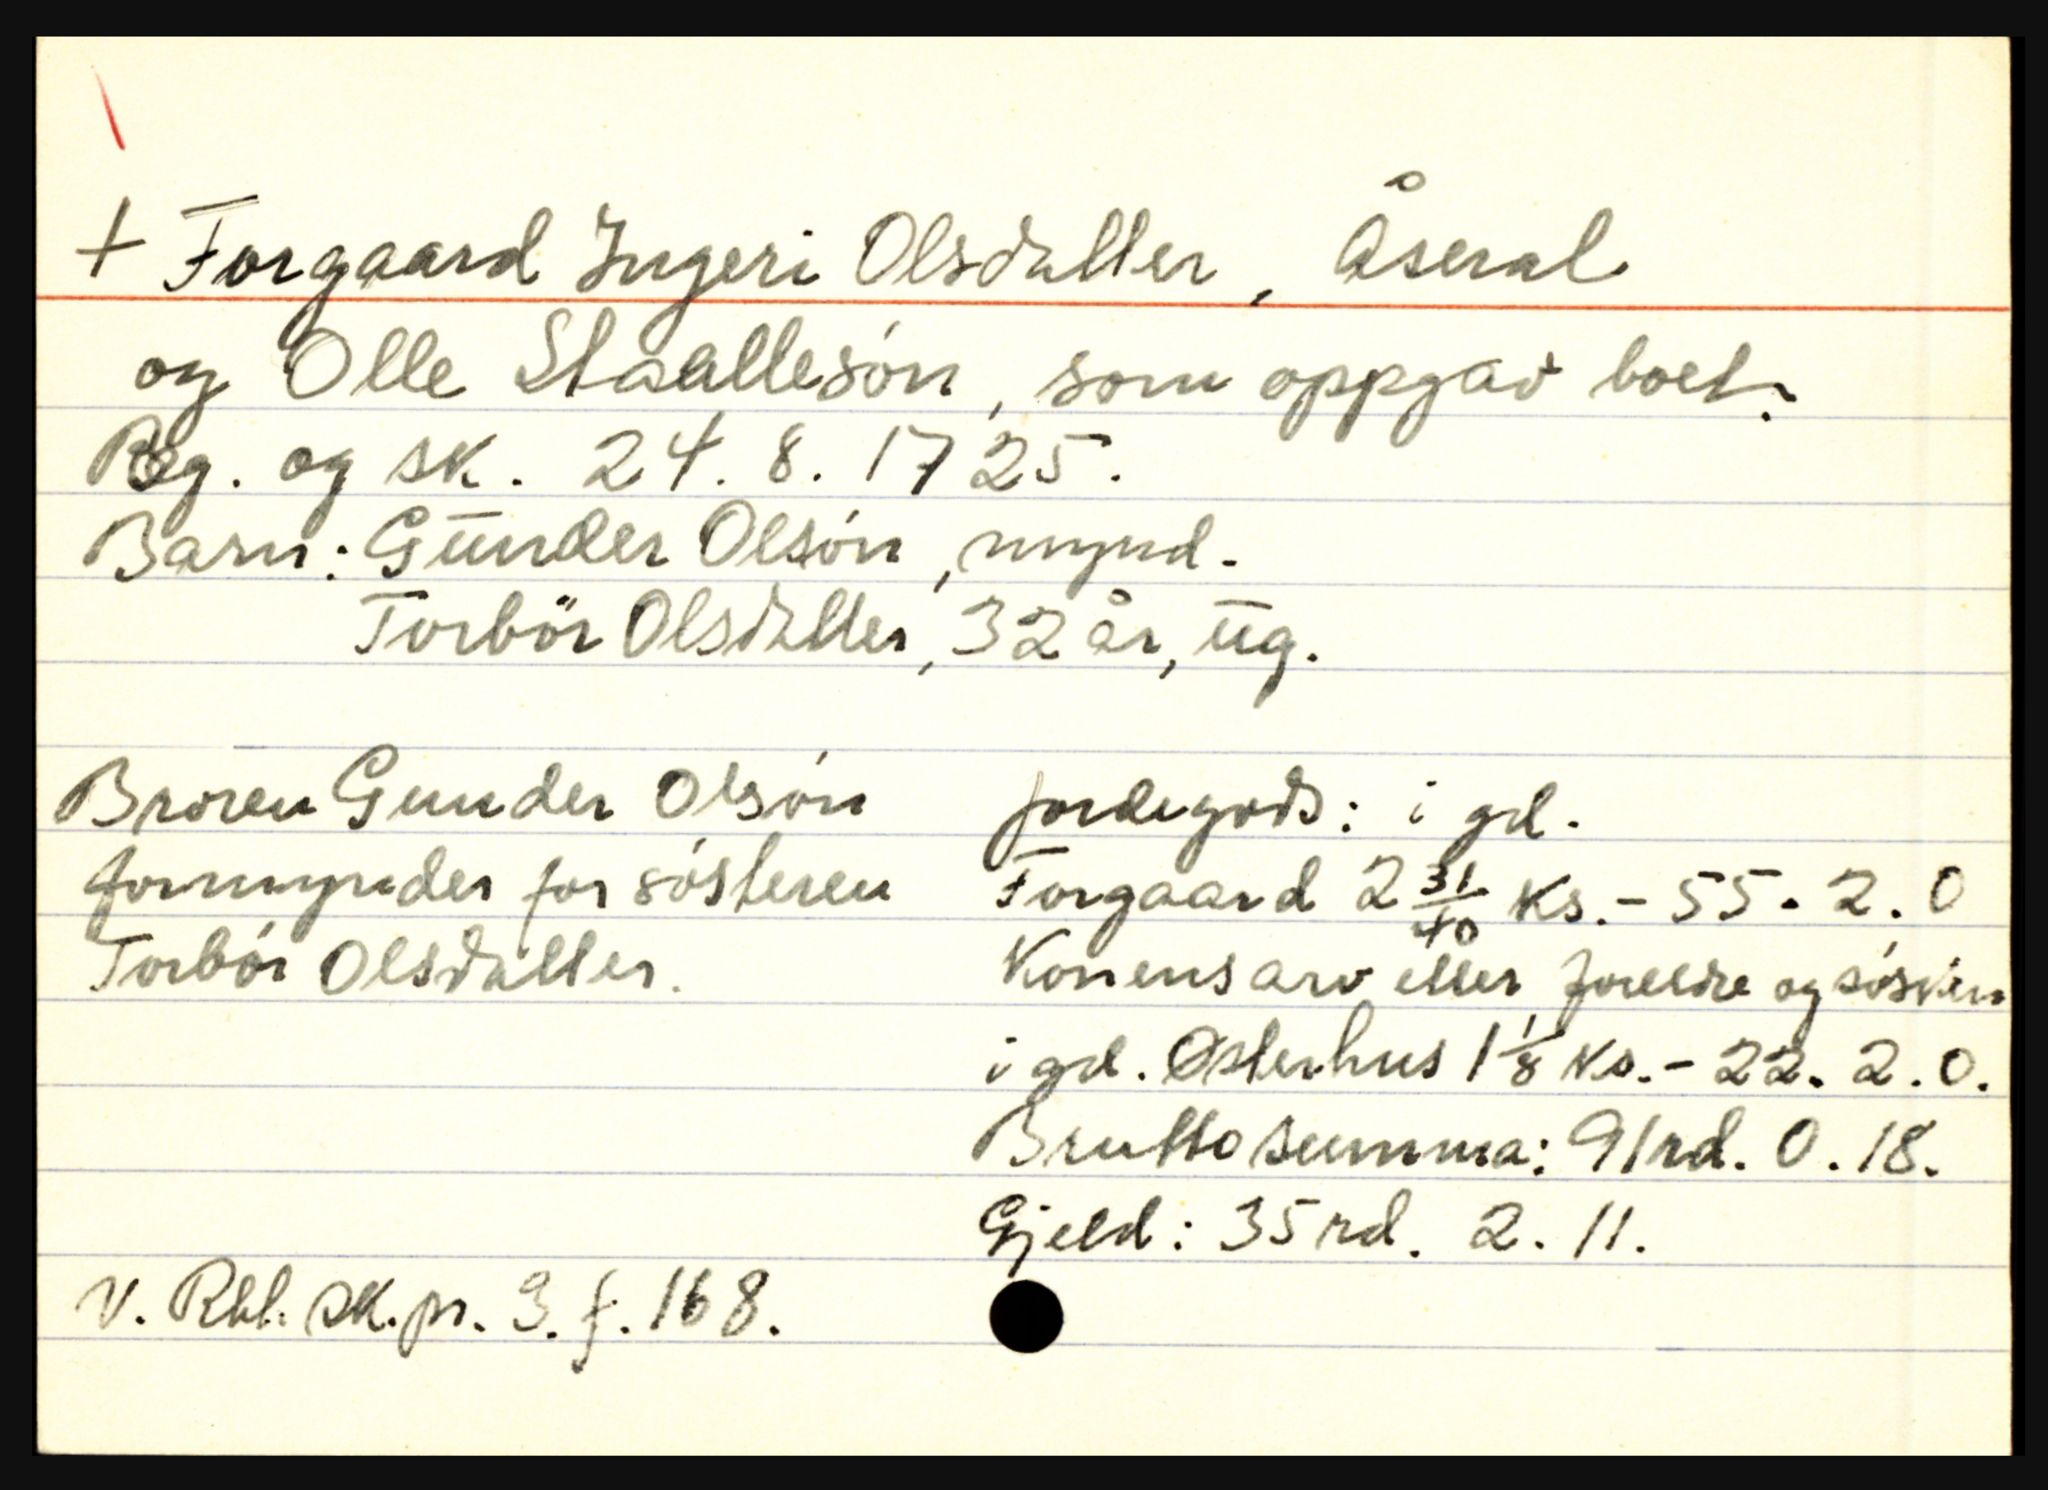 + Forgaard Ingeri Olsdatter, Åseral
og Olle Staallesón, som oppgav boet.
Reg. og sk. 24. 8. 1725.
Barn: Gunder Olsón, mynd.
Torbör Olsdatter, 32 år, ug.
Broren Gunder Olsón
formynder for sósteren
Torbór Olsdatter.
Jordegods: i gd.
Forgaard 2 31/40 ks. - 55. 2. 0
Konens arv etter foreldre og sósken
i gd. Østerhus 1 1/8 ks. - 22. 2. 0.
Brutto summa: 91 rd. 0. 18.
Gjeld: 35 rd. 2. 11.
V. Rbl. sk. pr. 3. f. 168.